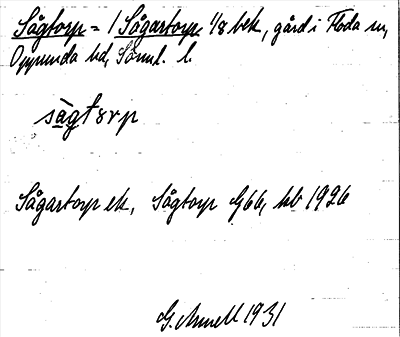 Sågtorp = / Sågartorp 1/8 bek, gård i Floda sn,
Oppunda hd, Söml. l.
sàgtɜrp
Sågartorp ek, Sågtorp G66, kb 1926
G. Arnell 1931